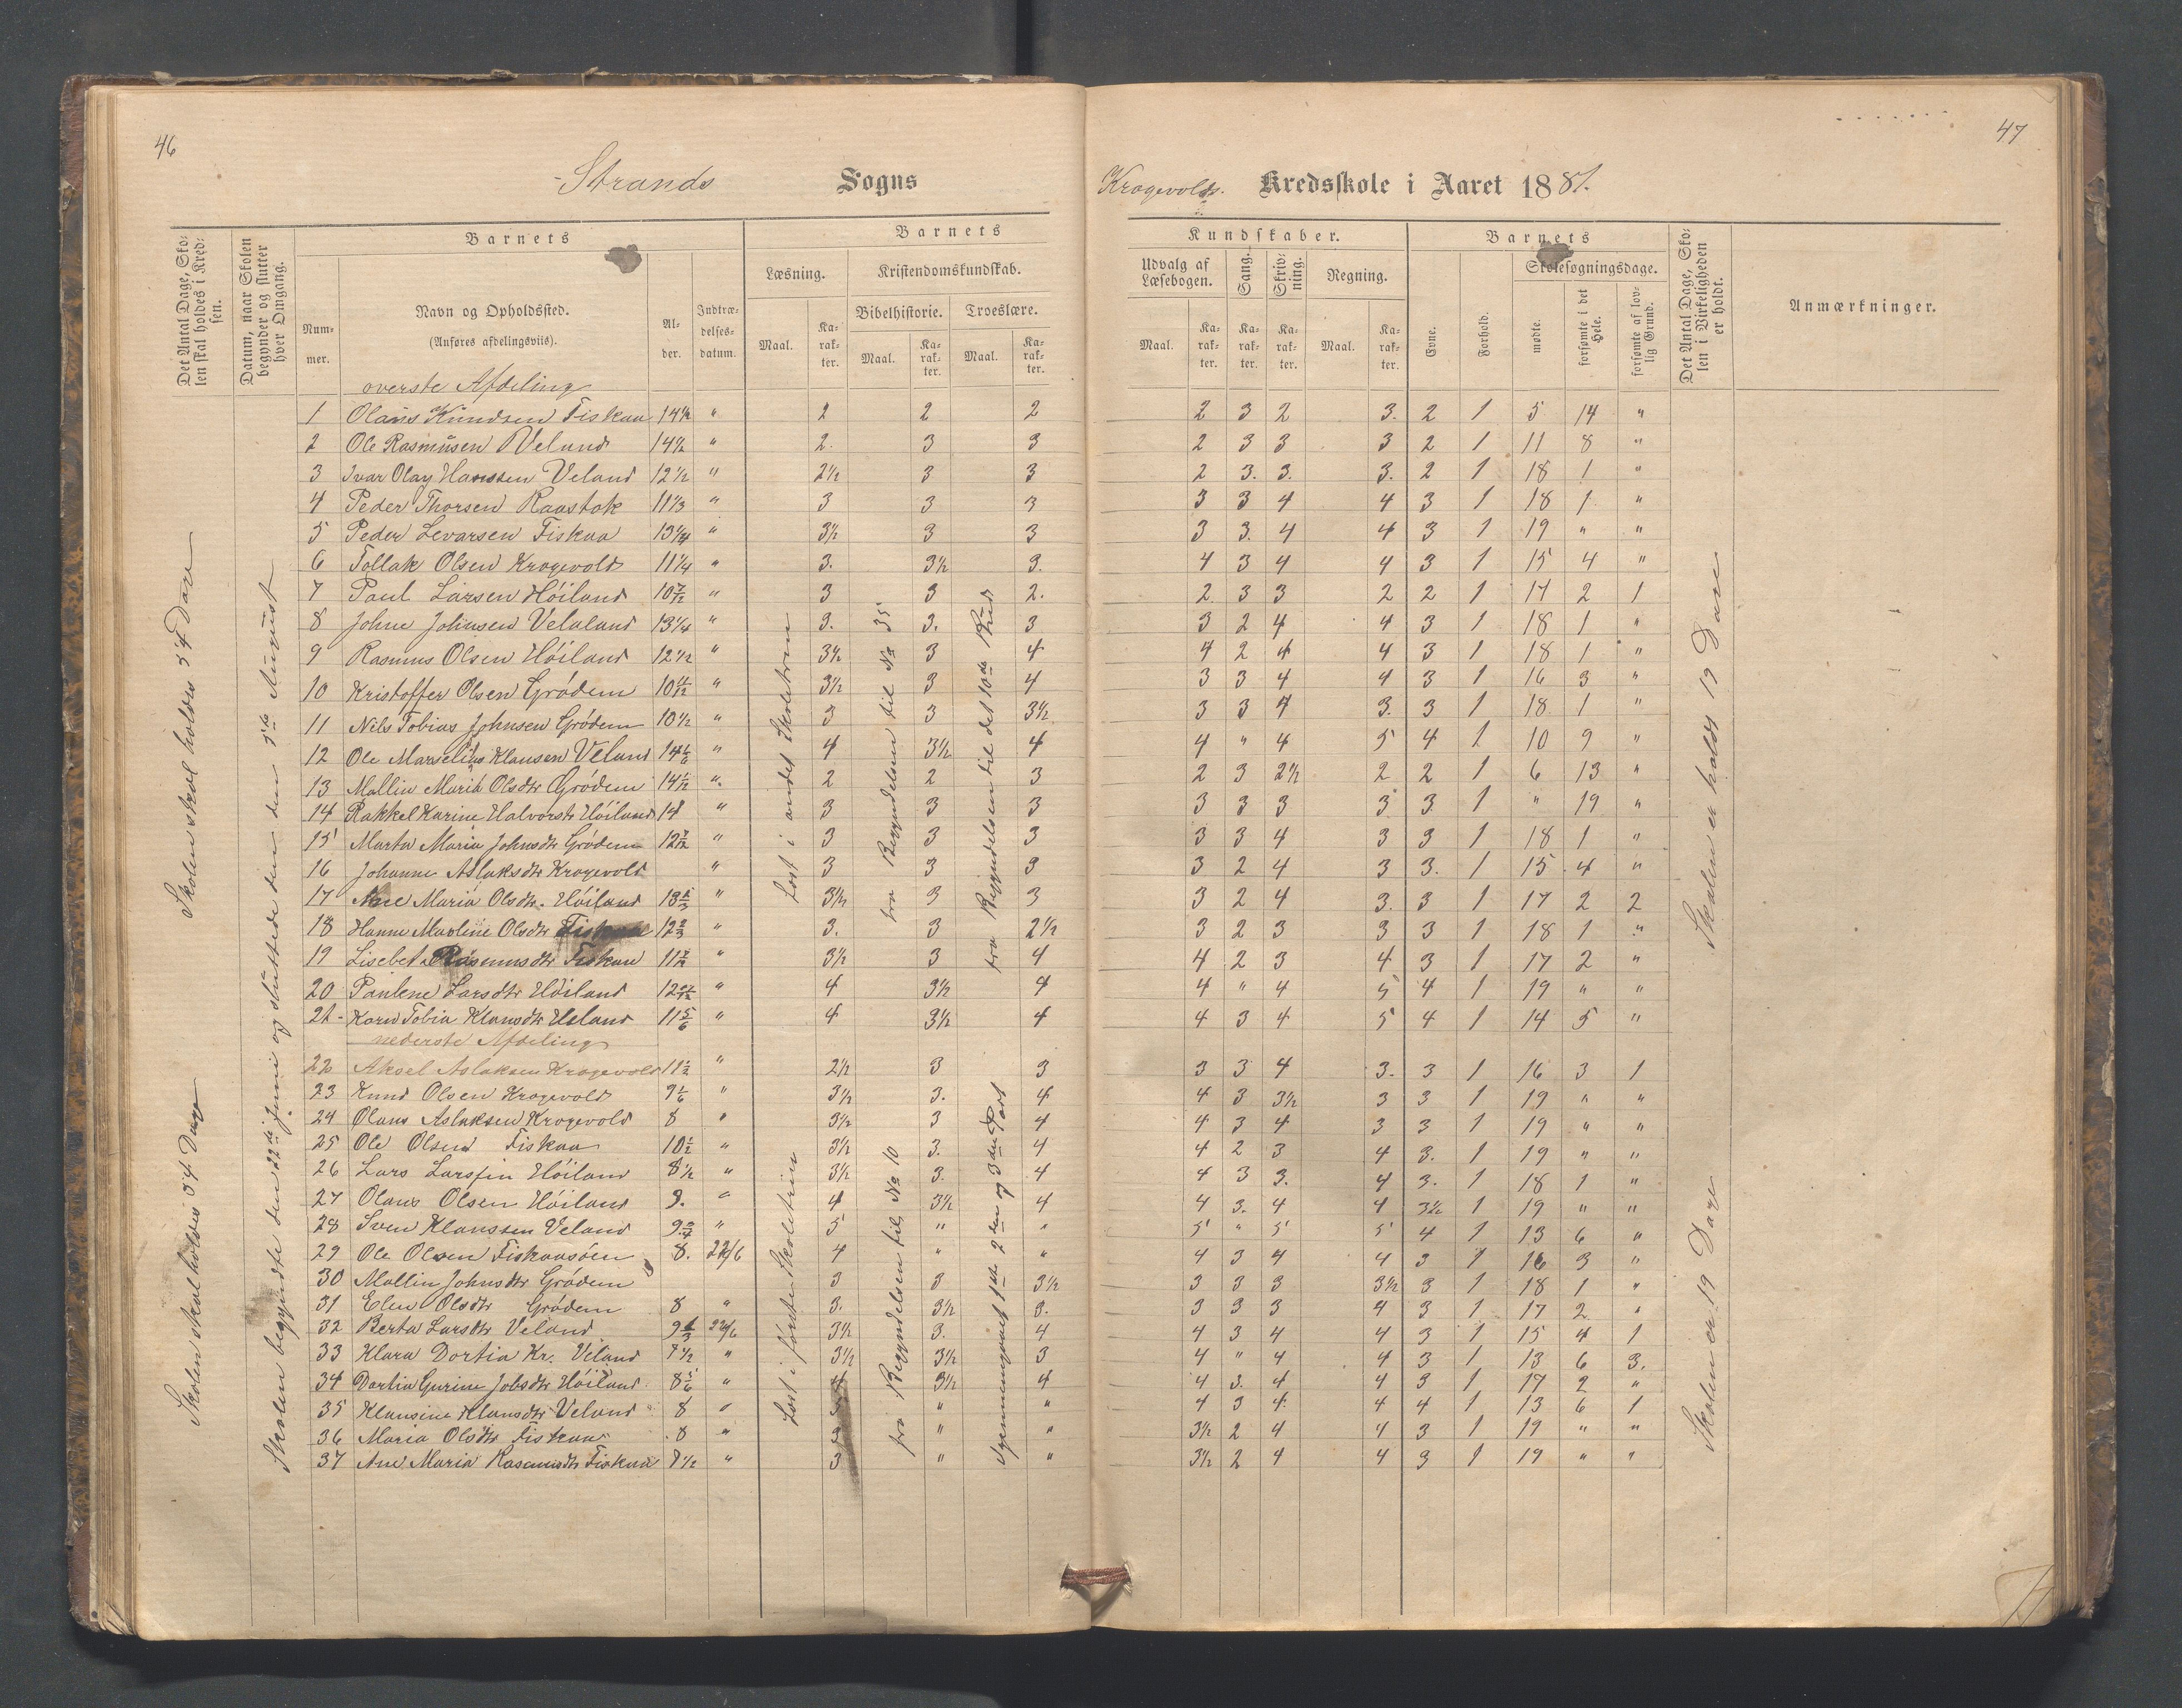 46
Strands Sogns
Krogevolds. Kredsskole i Aaret 1881.
47
Det Antal Dage, Skolen skal holdes i Kredsen.
Datum, naar Skolen begynder og slutter hver Omgang.
Barnets
Nummer.
Navn og Opholdssted.
(Anføres afdelingsviis).
Alder.
Indtrædelsesdatum.
Barnets
Læsning.
Kristendomskundskab.
Bibelhistorie.
Troeslære.
Maal.
Karakter.
Maal.
Karakter.
Maal.
Karakter.
Kundskaber.
Udvalg af Læsebogen.
Sang.
Skrivning.
Regning.
Maal.
Karakter.
Karakter.
Karakter.
Maal.
Karakter.
Barnets
Evne.
Forhold.
Skolesøgningsdage.
mødte.
forsømte i det Hele.
forsømte af lovlig Grund.
Det Antal Dage, Skolen i Virkeligheden er holdt.
Anmærkninger.
overste Afdeling
1 Olaus Knudsen Fiskaa 14½ " 2 2 2 2 3 2 3. 2 1 5 14 "
2 Ole Rasmusen Veland 14½ " 2. 3 3 2 3 3 3 2 1 11 8 "
3 Ivar Olay Hanssen Veland 12½ " 2½ 3 3 2 3. 3. 3. 2 1 18 1 "
4 Peder Thorsen Raastok 11⅓ " 3 3 3 3 3 4 4 3 1 18 1 "
5 Peder Levarsen Fiskaa 13¼ " 3½ 3 3 3 3. 4 4 3 1 19 " "
6 Tollak Olsen Krogevold 11¼ " 3. 3½ 3. 4 3 4 4 3 1 15 4 "
7 Paul Larsen Høiland 10 7/12 " 3 3 2. 2. 3 3 2 2 1 17 2 1
8 Johne Johnsen Velaland 13¼ " 3. 3. 3 3 2 4 4 3 1 18 1 "
9 Rasmus Olsen Høiland 12½ " 3½ 3 4 4 2 4 4 3 1 18 1 "
10 Kristoffer Olsen Grødem 10 11/12 " 3½ 3 4 3 3 4 4 3 1 16 3 "
11 Nils Tobias Johnsen Grødem 10½ " 3 3 3½ 3 3 4 3. 3 1 18 1 "
12 Ole Marselius Klausen Veland 14 1/6 " 4 3½ 4 4 " 4 5 4 1 10 9 "
13 Mallin Maria Olsdtr Grødem 14 1/12 " 2 2 3 2 3 2½ 2 2 1 6 13 "
14 Rakkel Karine Halvorsdtr Høiland 14 " 3 3 3 3 3 3 3 3 1 " 19 "
15 Marta Maria Johnsdtr Grødem 12 7/12 " 3 3 3 3 3 4 3 3 1 18 1 "
16 Johanne Aslaksdtr Krogevold " 3 3 3 3 2 4 3 3. 1 15 4 "
17 Maria Olsdtr. Høiland 13⅓ " 3½ 3 3 3 2 4 3. 3 1 17 2 2
18 Hanne Marline Olsdtr Fiskaa 12⅔ " 3. 3 2½ 3 2 3 3 3 1 18 1 "
19 Lisebet Rasmusdtr Fiskaa " 3½ 3 4 4 2 3 4 3 1 17 2 "
20 Paulene Larsdtr Høiland " 4 3½ 4 4 " 4 5 4 1 19 " "
21 Karen Tobia Klausdtr Veland 11 5/6 " 4 3½ 4 4 3 4 5 4 1 14 5 "
nederste Afdeling
22 Aksel Aslaksen Krogevold 11½ " 2½ 3 3 3 3 4 3. 3 1 16 3 1
23 Knud Olsen Krogevold 9 1/6 " 3½ 3. 4 4 3 3½ 3 3 1 19 " "
24 Olaus Aslaksen Krogevold 8 " 3½ 3 4 4 3 4 3 3 1 19 " "
25 Ole Olsen Fiskaa 10½ " 3½ 3. 4 4 2 3 4 3. 1 19 " "
26 Lars Larssen Høiland 8½ " 3½ 3. 4 4 3 3. 4 3. 1 18 1 "
27 Olaus Olsen Høiland 9. " 4 3½ 4 4 3. 4 4 3½ 1 19 " "
28 Sven Klaussen Veland 9¾ " 5 " " 5 " 5 5 4 1 13 6 "
29 Ole Olsen Fiskaasøen 8. 22/6 4 " " 4 3 4 4 3 1 16 3 "
30 Mallin Johnsdtr Grødem 3 3 3½ 3 3 3 3½ 3 1 18 1 "
31 Elen Olsdtr Grødem 8 " 3. 3½ 3. 3 3 3 4 3 1 17 2 "
32 Berta Larsdtr Veland 9⅓ 22/6 3½ 3. 4 4 3 4 4 3 1 15 4 1
33 Klara Dortia Kr. Veland 7½ " 3½ 3½ 3 4 " 4 4 3 1 13 6 3.
34 Dortia Gurine Jobsdtr Høiland 8 5/6 " 4 3½ 4 4 3. 4 4 3 1 17 2 "
35 Klausine Klausdtr Veland 8 " " " 4 3 4 4 4 1 13 6 1
36 Maria Olsdtr Fiskaa 8 " 3 " " 3½ 2 4 4 3 1 19 " "
37 Ane Maria Rasmusdtr Fiskaa 7½ " 3 " " 3½ 2 4 4 3 1 19 " "
Skolen skal holdes 54 Dage
Skolen skal holdes 54 Dage
Skolen begyndte den 22de Juni og sluttede den 5te August
Læst i andet Skoletrin
Læst i første Skoletrin
fra Begyndelsen til No 35
fra Begyndelsen til No 10
fra Begyndelsen til det 10de Bud
Gjennemgaaet 1ste 2den og 3die Part
Skolen er holdt 19 Dage
Skolen er 19 Dage